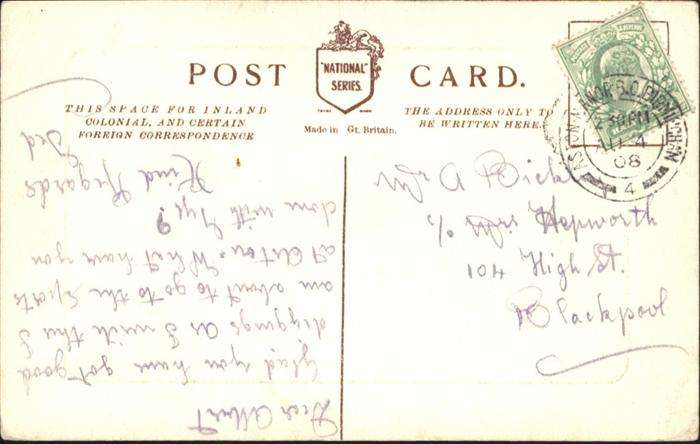 POST CARD.
"NATIONAL" SERIES.
THIS SPACE FOR INLAND
COLONIAL, AND CERTAIN
FOREIGN CORRESPONDENCE
Made in Gt. Britain.
THE ADDRESS ONLY TO
BE WRITTEN HERE
08
4
Mr A
c/o Hepworth
104 High St.
Blackpool
Dear Albert
Glad you have got good
diggings As I write this I
am about to go to the Sports
at Aston. What have you
done with Nye?
Kind Regards
Ted